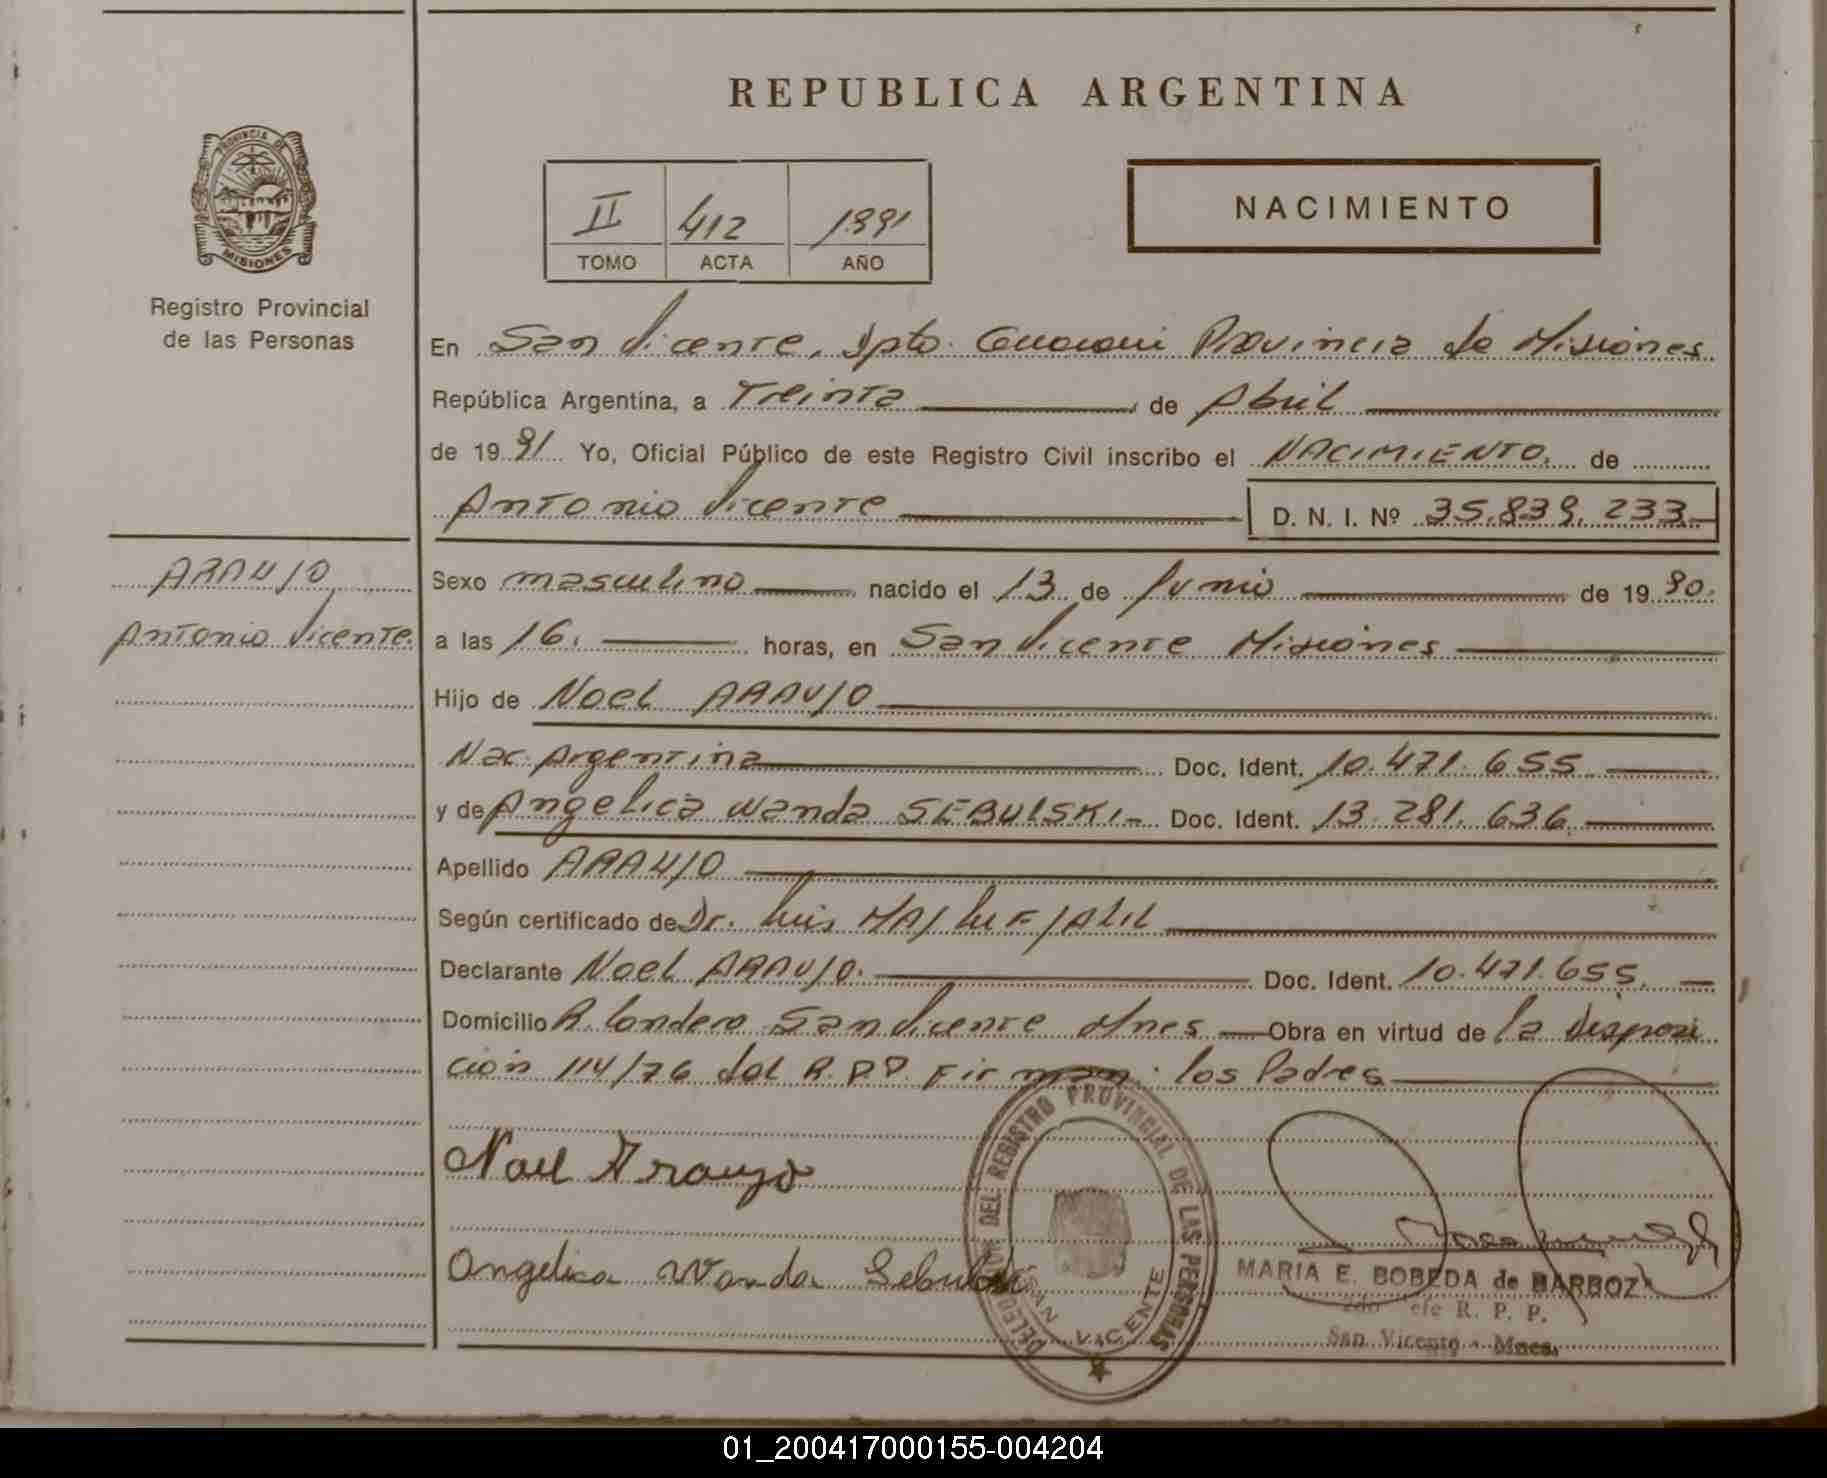 REPUBLICA ARGENTINA
PROVINCIA DE
MISIONES
Registro Provincial
de las Personas
II 412 1991
TOMO ACTA AÑO
NACIMIENTO
En San Vicente, Dpto. Guarani Provincia de Misiones
República Argentina, a Treinta de Abril
de 1991 Yo, Oficial Público de este Registro Civil inscribo el NACIMIENTO. de
Antonio Vicente D. N. I. Nº 35.839.233.
ARAUJO
Antonio Vicente.
Sexo masculino nacido el 13 de Junio de 1990.
a las 16. horas, en San Vicente Misiones
Hijo de Noel ARAUJO
Nac. Argentina Doc. Ident. 10.471.655
y de Angelica Wanda SEBULSKI Doc. Ident. 13.281.636
Apellido ARAUJO
Según certificado de Dr. Luis
Declarante Noel ARAUJO. Doc. Ident. 10.471.655.
Domicilio San Vicente Mnes Obra en virtud de la Disposi
ción 114/76 del R.P.P. Firman: los Padres
Noel Araujo
Angelica Wanda Sebulski
DEL REGISTRO PROVINCIAL DE LAS PERSONAS
SAN VICENTE
MARIA E. BOBEDA de BARBOZA
2do Jefe R. P. P.
San Vicente - Mnes.
01_200417000155-004204